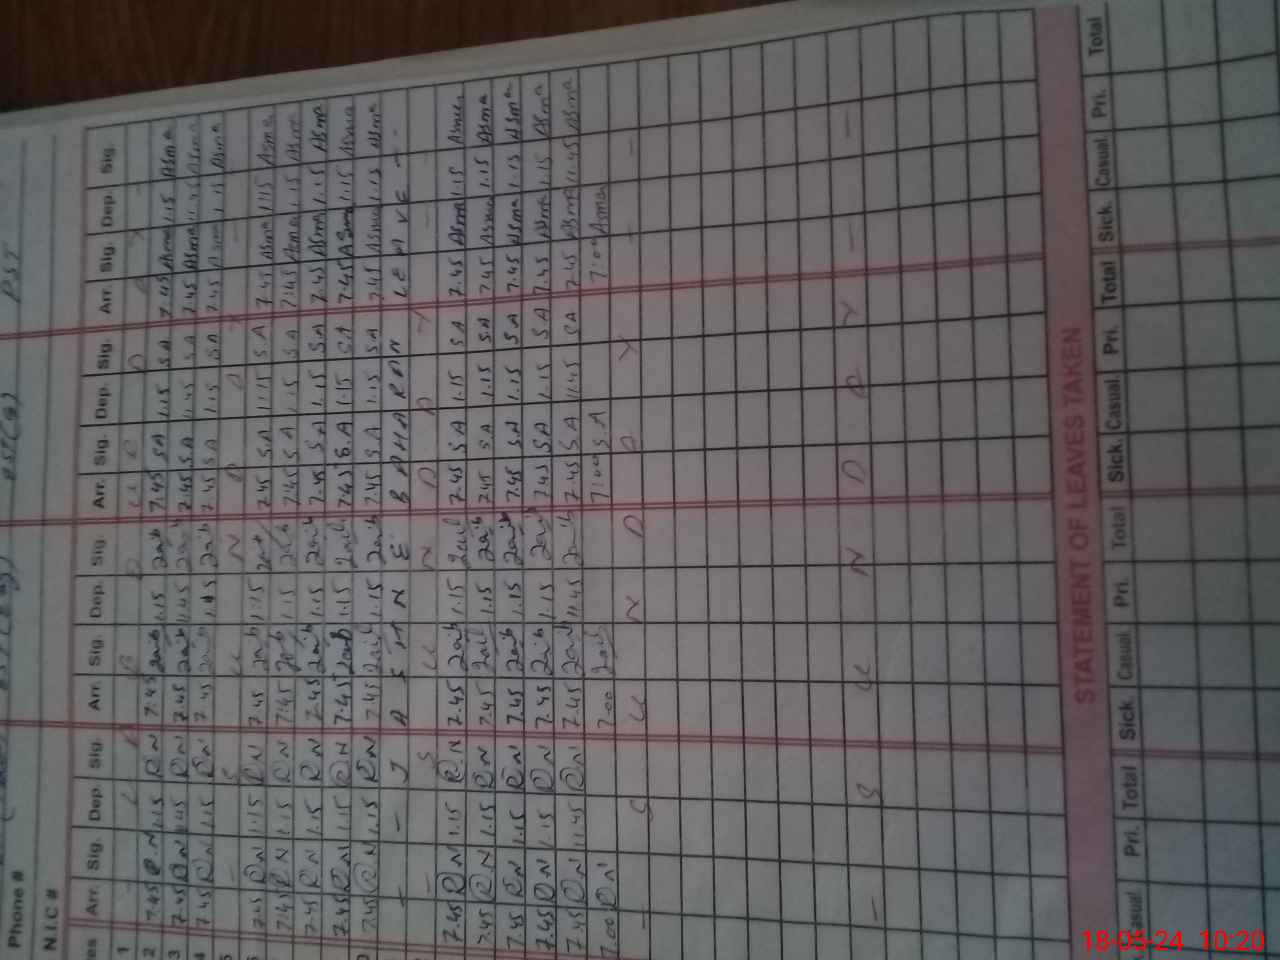 Phone #
N.I.C #
es Arr. Sig. Dep. Sig. Arr. Sig. Dep. Sig. Arr. Sig. Dep. Sig. Arr. Sig. Dep Sig.
1
2 7.45 R.N 1.15 R.N 7.45 Zaib 1.15 Zaib 7.45 S.A 1.15 S.A 7.45 Asma 1.15 Asma
3 7.45 R.N 11.45 R.N 7.45 Zaib 11.45 Zaib 7.45 S.A 11.45 S.A 7.45 Asma 11.45 Asma
4 7.45 R.N 1.15 R.N 7.45 Zaib 1.15 Zaib 7.45 S.A 1.15 S.A 7.45 Asma 1.15 Asma
5 - S U N D A Y -
7.45 R.N 1.15 R.N 7.45 Zaib 1:15 Zaib 7.45 S.A 1:15 S.A 7.45 Asma 1:15 Asma
7.45 R.N 1.15 R.N 7:45 Zaib 1.15 Zaib 7.45 S.A 1.15 S.A 7:45 Asma 1.15 Asma
7.45 R.N 1.15 R.N 7.45 Zaib 1.15 Zaib 7.45 S.A 1.15 S.A 7.45 Asma 1.15 Asma
7.45 R.N 1.15 R.N 7.45 Zaib 1.15 Zaib 7.45 S.A 1.15 S.A 7.45 Asma 1.15 Asma
7.45 R.N 1.15 R.N 7.45 Zaib 1.15 Zaib 7.45 S.A 1.15 S.A 7.45 Asma 1.15 Asma
- - J A S H N E B A H A R A N LEAVE - -
- S U N D A Y -
7.45 R.N 1.15 R.N 7.45 Zaib 1.15 Zaib 7.45 S.A 1.15 S.A 7.45 Asma 1.15 Asma
7.45 R.N 1.15 R.N 7.45 Zaib 1.15 Zaib 7.45 S.A 1.15 S.A 7.45 Asma 1.15 Asma
7.45 R.N 1.15 R.N 7.45 Zaib 1.15 Zaib 7.45 S.A 1.15 S.A 7.45 Asma 1.15 Asma
7.45 R.N 1.15 R.N 7.45 Zaib 1.15 Zaib 7.45 S.A 1.15 S.A 7.45 Asma 1.15 Asma
7.45 R.N 11.45 R.N 7.45 Zaib 11.45 Zaib 7.45 S.A 11.45 S.A 7.45 Asma 11.45 Asma
7.00 R.N 7.00 Zaib 7:00 S.A 7:00 Asma
- S U N D A Y - -
- S U N D A Y - -
STATEMENT OF LEAVES TAKEN
asual Pri. Total Sick. Casual Pri. Total Sick. Casual Pri. Total Sick. Casual Pri. Total
18-05-24 10:20